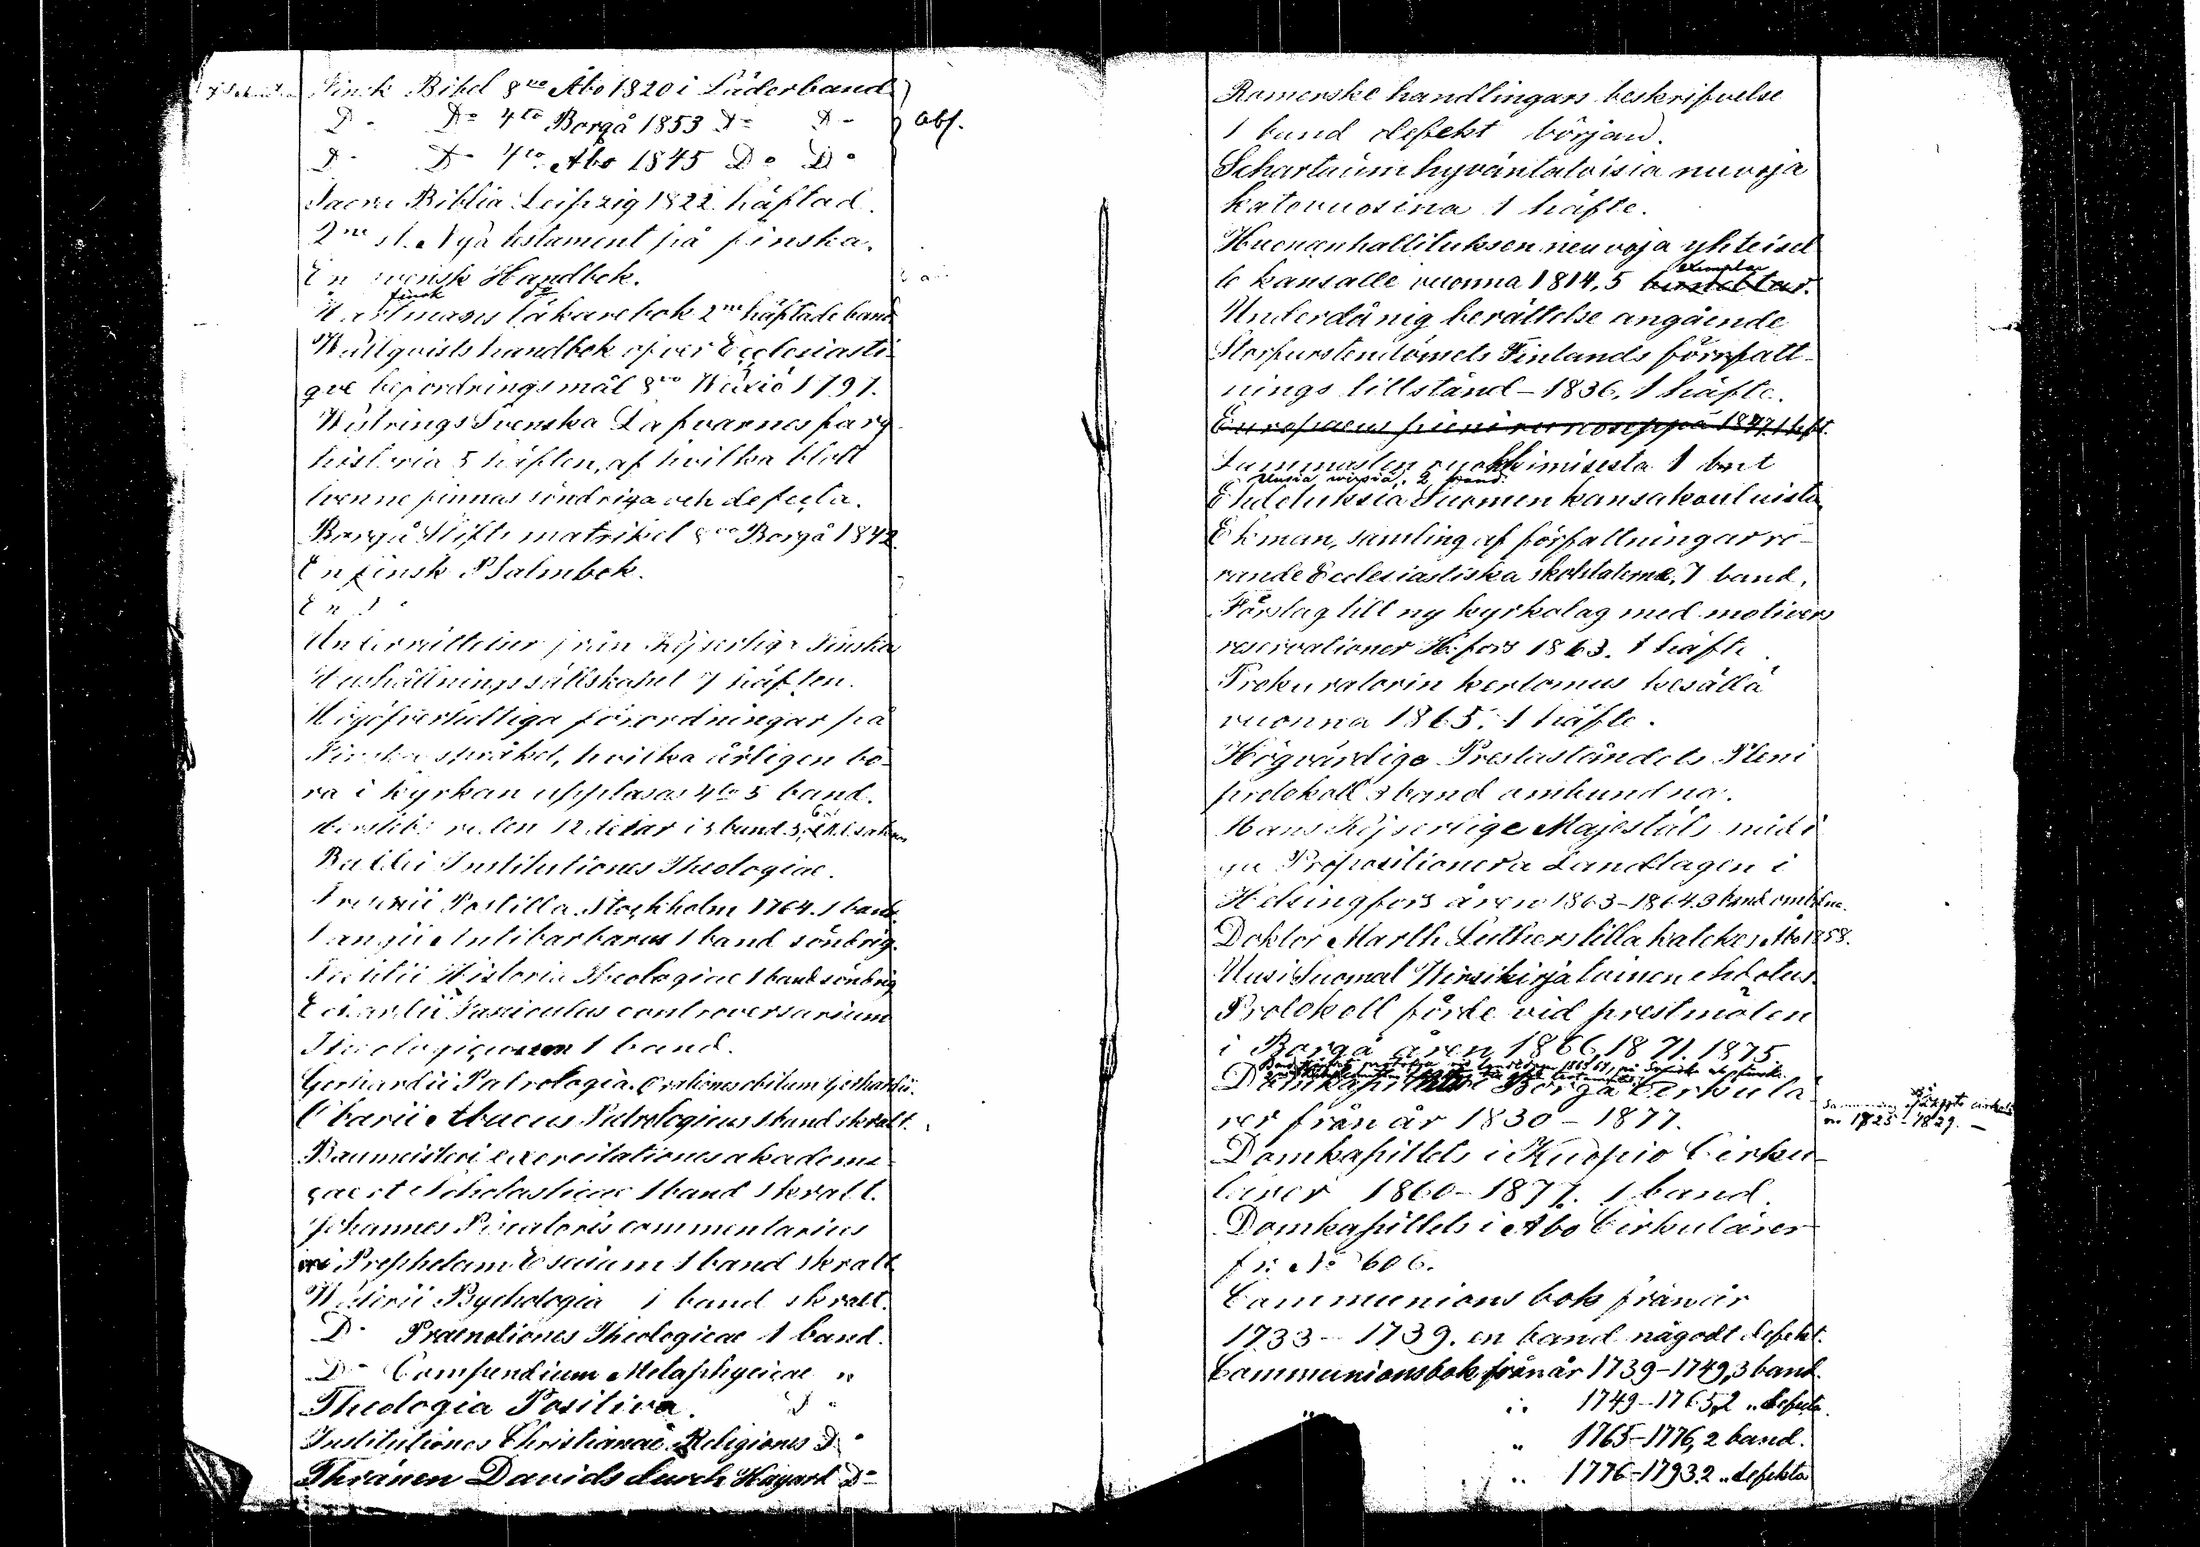 Finsk Bibel 8vo Åbo 1820 i Läderband
Do Do 4to Borgå 1853 Do Do
Abs.
Do Do 4to Åbo 1845 Do Do
Sacra Biblia Leipzig 1822 häftad.
2ne st. Nya testament på finska.
En svensk Handbok.
finsk do
Hartmans läkarebok 2ne häftade band
Wallqvists handbok öfver Ecclesiasti-
que befordringsmål 8vo Wexiö 1797.
Svenska
historia 5 häften, af hvilka blott
tvenne finnas söndriga och defecta.
Borgå Stifts matrikel 8vo Borgå 1842
En finsk Psalmbok.
En Do
Underrättelser från Kejserliga Finska
Hushållningssällskapet 7 häften.
Högöfverhettliga förordningar på
Finska språket, hvilka årligen bö-
ra i kyrkan uppläsas 4to 5 band.
Institutiones Theologiae.
Postilla. Stockholm 1764. 1 band.
Langii Antibarbarus 1 band söndrig.
Historia Theologiae 1 band söndrig
Fasciculus controversarium
Theologicarum 1 band.
Gerhardii Patrologia. Orationes obitum Gerhardii.
Abacus Patrologicus 1 band skralt.
Baumeisteri exercitationes akademi-
cae et Scholasticae 1 band skralt.
Johannes Piscatoris commentarius
in Prophetam Esaium 1 band skralt
Psychologia 1 band skralt.
Do Praenotiones Theologicae 1 band.
Do Compendium Metaphysicae "
Theologia Positiva. Do
Institutiones Christianae Religiones Do
Thränen Davids durch Do
Romerske handlingars beskrifvelse
1 band defekt början.
Schartauim hyväntatoisia neuvoja
katovuosina 1 häfte.
Huonenhallituksen neuvoja yhteisel
exemplar
le kansalle vuonna 1814, 5
Underdånig berättelse angående
Storfurstendömets Finlands författ-
nings tillstånd - 1836, 1 häfte.
Europaeus pieni runoseppä 1847. 1 hft.
Lammasten ruokkimisesta 1 bnt
Uusia wirsiä, 2 band.
Ehdotuksia Suomen kansakouluista
Ekman, samling af författningar rö-
rande Ecclesiastika 7 band.
Förslag till ny kyrkolag med motiver
reservationer H:fors 1863. 1 häfte.
Prokuratorin kertomus kesällä
vuonna 1865. 1 häfte.
Högvärdige Prestaståndets Pleni
protokoll 3 band ombundna.
Hans Kejserlige Majestäts nådi
ga Propositioner a Landtagen i
Helsingfors åren 1863-1864. 3 band ombdna.
Doktor Marth. Luthers lilla katekes Åbo 1858.
Uusi Suomal. Wirsikirja toinen ehdotus.
Protokoll förde vid prestmöten
i Borgå åren 1866, 1871. 1875.
Domkapitlets i Borgå Cirkulä-
rer från år 1830 - 1877.
1725 - 1829. -
Domkapitlets i Kuopio Cirku-
lärer 1860-1877. 1 band.
Domkapitlets i Åbo Cirkulärer
fr. No 606.
Communions bok från år
1733 - 1739. en band något defekt.
Communionsbok från år 1739-1749, 3 band.
" " 1749-1765, 2 " defecta.
" 1765-1776, 2 band.
" 1776-1793. 2 " defekta